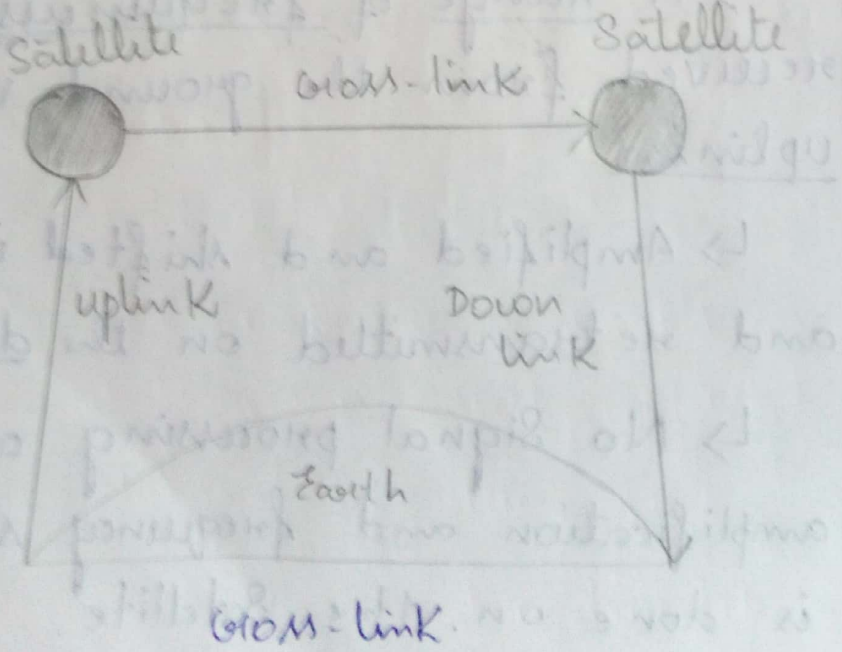 Satellite
Satellite
Cross-link
uplink
Down
link
Earth
Cross-link.